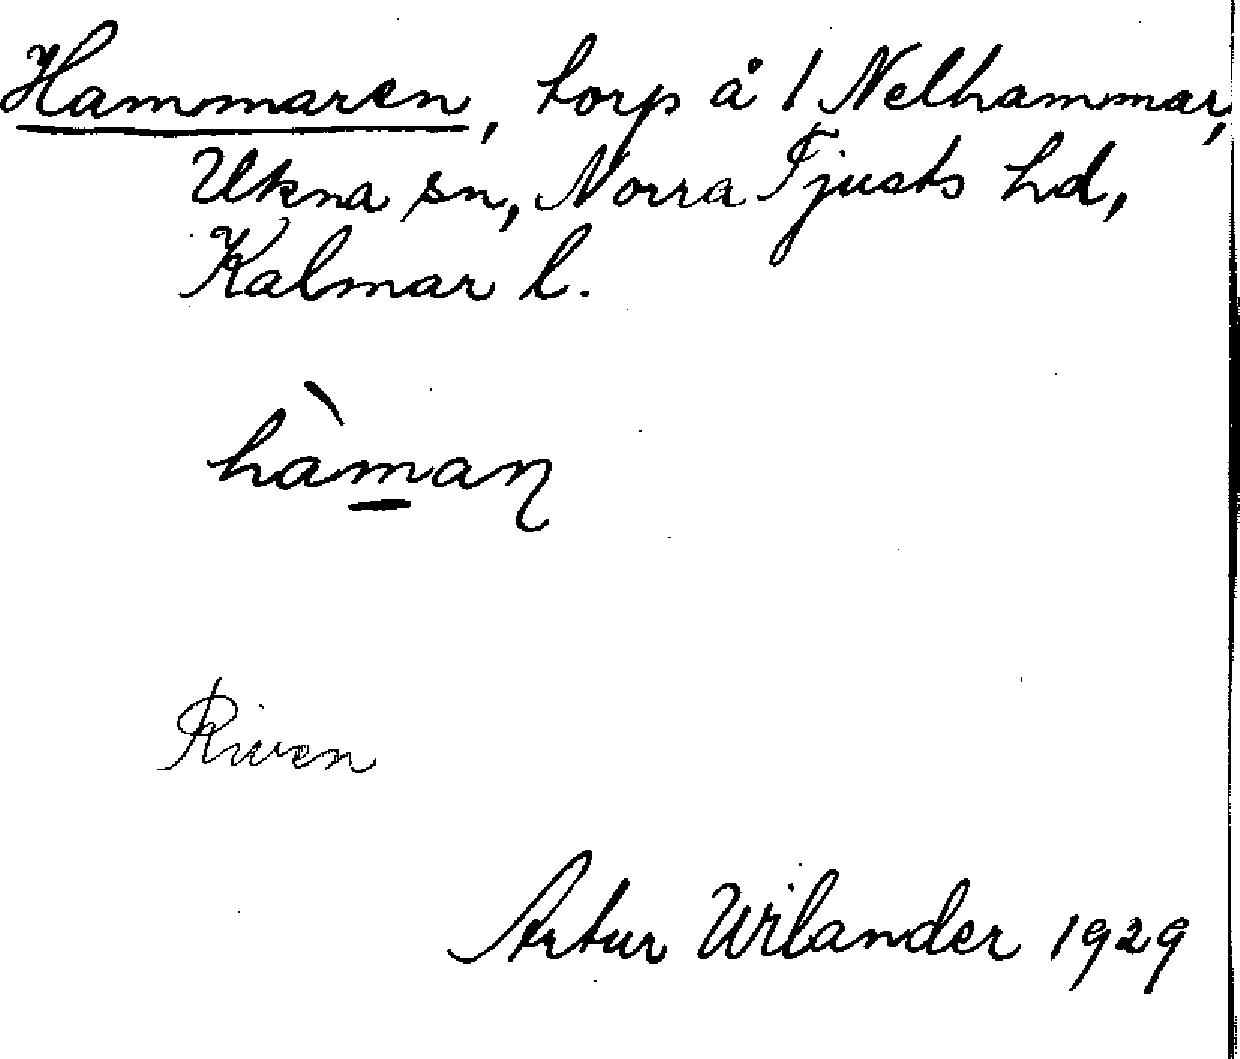 Hammaren, torp å 1 Nelhammar,
Ukna sn, Norra Tjusts hd,
Kalmar l.
hàman
Riven
Artur Wilander 1929